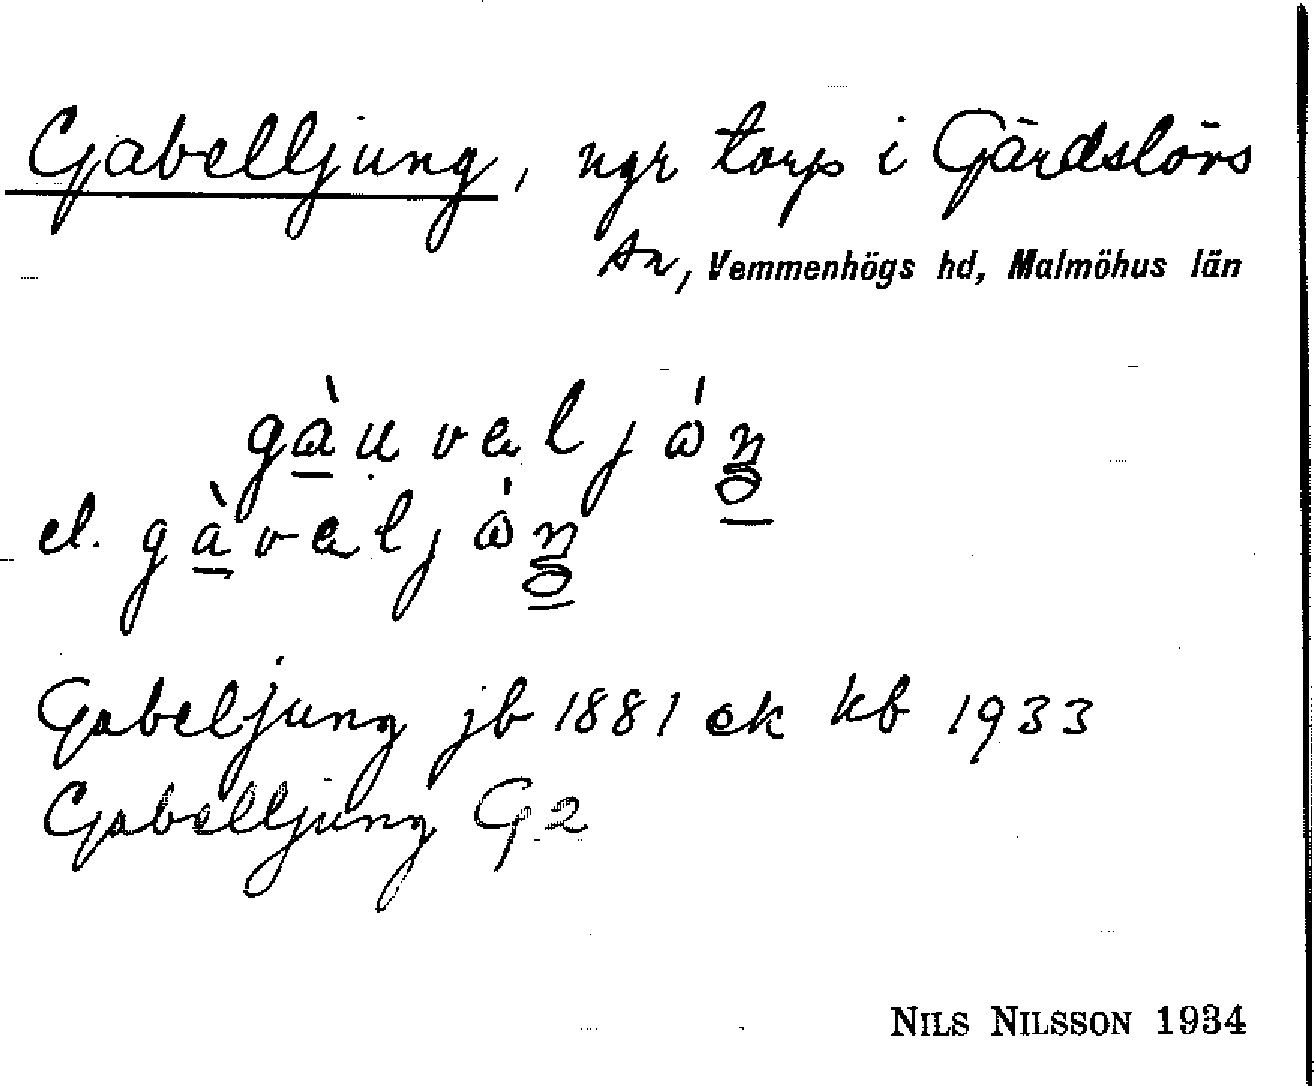 Gabelljung, ngr torp i Gärdslövs
sn, Vemmenhögs hd, Malmöhus län
el.
Gabeljung jb 1881 ek kb 1933
Gabelljung G2
NILS NILSSON 1934